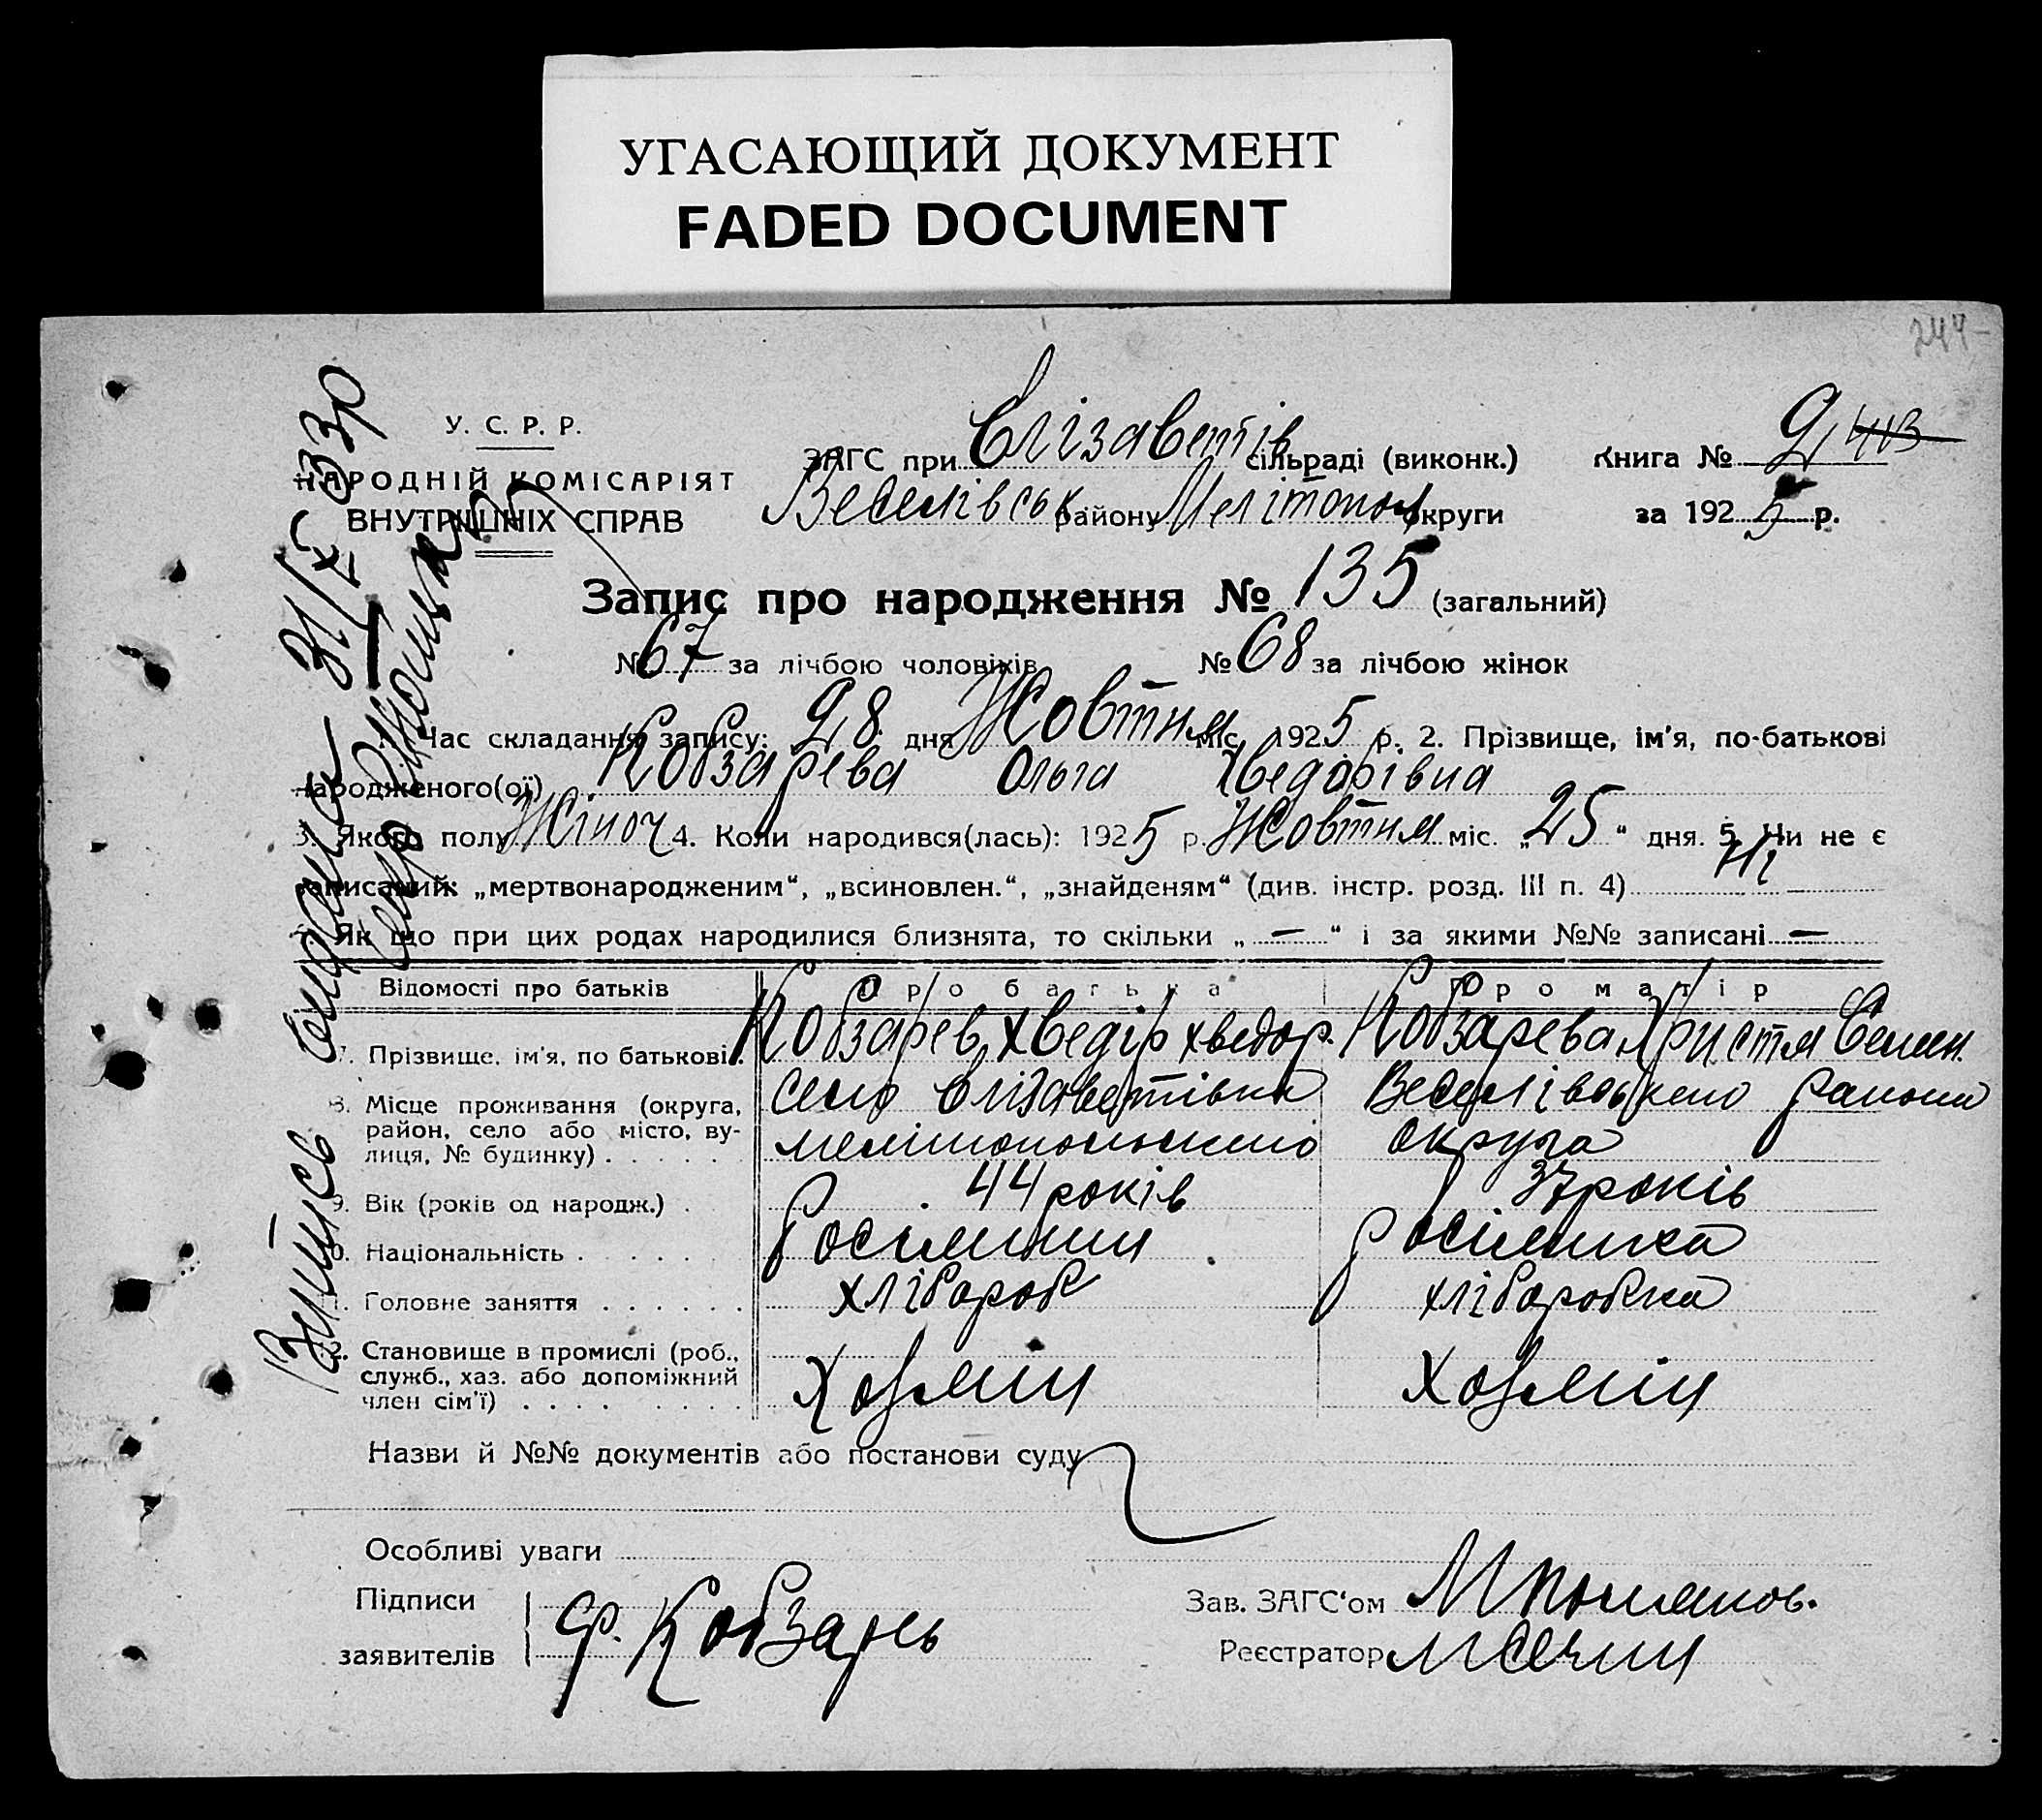 УГАСАЮЩИЙ ДОКУМЕНТ
FADED DOCUMENT
244
У. С. Р. Р.
НАРОДНІЙ КОМІСАРІЯТ
ВНУТРІШНІХ СПРАВ
ЗАГС при Єлізаветів сільраді (виконк.)
Веселівськ району Мелітопол округи
Книга № 2
за 1925 р.
Запис про народження № 135 (загальний)
№ 67 за лічбою чоловіків № 68 за лічбою жінок
1. Час складання запису: 28 дня Жовтня міс. 1925 р. 2. Прізвище, ім'я, по-батькові
народженого(ої) Кобзарева Ольга Хведорівна
3. Якого полу Жіноч 4. Коли народився(лась): 1925 р. Жовтня міс. „25“ дня. 5. Чи не є
записаний: „мертвонародженим“, „всиновлен.“, „знайденям“ (див. інстр. розд. III п. 4) Ні
6. Як що при цих родах народилися близнята, то скільки „ — “ і за якими №№ записані —
Відомості про батьків Про батька Про матір
7. Прізвище, ім'я, по батькові. Кобзарев Хведір Хведор. Кобзарева Христя Семен.
8. Місце проживання (округа, район, село або місто, вулиця, № будинку) село Єлізаветівка Веселівського района
мелітопольської округа
9. Вік (років од народж.) . 44 років 37 років
10. Національність . . . . . . Росіянин Росіянка
11. Головне заняття . . . . . . хлібороб хліборобка
12. Становище в промислі (роб.,
служб., хаз. або допоміжний
член сім'ї) . . . . . . . . Хозяин Хозяин
Назви й №№ документів або постанови суду
Особливі уваги
Підписи
заявителів Ф. Кобзарь
Зав. ЗАГС'ом
Реєстратор